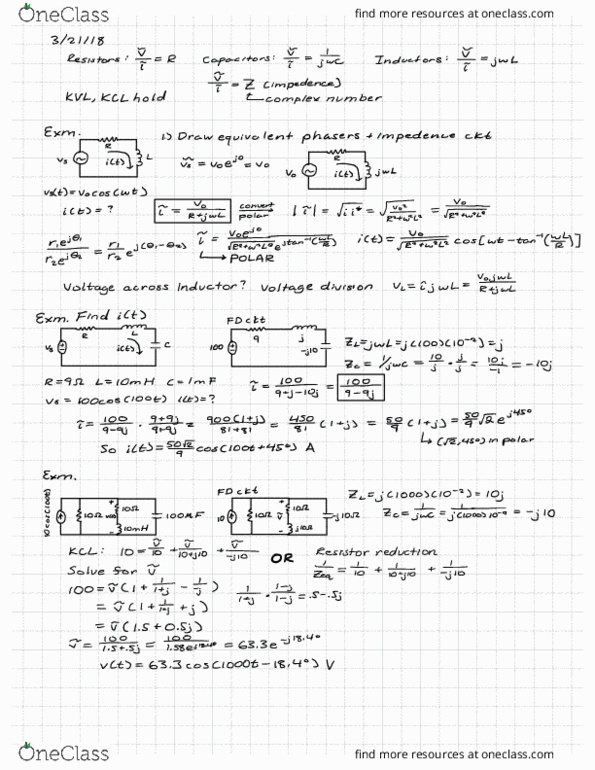 OneClass find more resources at oneclass.com
3/21/18
Resistors: ṽ/ĩ = R Capacitors: ṽ/ĩ = 1/jwC Inductors: ṽ/ĩ = jwL
ṽ/ĩ = Z (impedence)
↳ complex number
KVL, KCL hold
Exm. 1) Draw equivalent phasers + impedence ckt
Vs R i(t) L ṽs = v₀e^j0 = v₀ V₀ R jwL
vs(t) = v₀cos(wt)
i(t) = ? ĩ = V₀/(R+jwL) convert polar |ĩ| = √(i i*) = √(V₀²/(R²+w²L²)) = V₀/√(R²+w²L²)
r₁e^jθ₁/r₂e^jθ₂ = r₁/r₂ e^j(θ₁-θ₂) ĩ = V₀e^j0/(√(R²+w²L²) e^jtan⁻¹(wL/R)) i(t) = V₀/√(R²+w²L²) cos[wt-tan⁻¹(wL/R)]
↳ POLAR
Voltage across Inductor? Voltage division VL = ĩjwL = V₀jwL/(R+jwL)
Exm. Find i(t) FD ckt
Vs R L i(t) C 100 9 j -j10 ZL = jwL = j(100)(10⁻²) = j
Zc = 1/jwC = 10/j · j/j = 10j/-1 = -10j
R = 9Ω L = 10mH C = 1mF ĩ = 100/(9+j-10j) = 100/(9-9j)
vs = 100cos(100t) i(t) = ?
ĩ = 100/(9-9j) · (9+9j)/(9+9j) = 900(1+j)/(81+81) = 450/81 (1+j) = 50/9 (1+j) = 50/9 √2 e^j45°
↳ (√2, 45°) in polar
So i(t) = 50√2/9 cos(100t+45°) A
Exm. FD ckt
10cos(1000t) 10Ω 10Ω 10mH 100μF 10 10Ω ṽ 10Ω j10Ω -j10Ω
ZL = j(1000)(10⁻²) = 10j
Zc = 1/jwC = 1/j(1000)10⁻⁴ = -j10
KCL: 10 = ṽ/10 + ṽ/(10+j10) + ṽ/-j10 OR Resistor reduction
1/Zeq = 1/10 + 1/(10+j10) + 1/-j10
Solve for ṽ
100 = ṽ(1 + 1/(1+j) - 1/j) 1/(1+j) · (1-j)/(1-j) = .5-.5j
= ṽ(1 + 1/(1+j) + j)
= ṽ(1.5 + 0.5j)
ṽ = 100/(1.5+.5j) = 100/1.58e^j18.4° = 63.3e^-j18.4°
v(t) = 63.3cos(1000t-18.4°) V
OneClass find more resources at oneclass.com